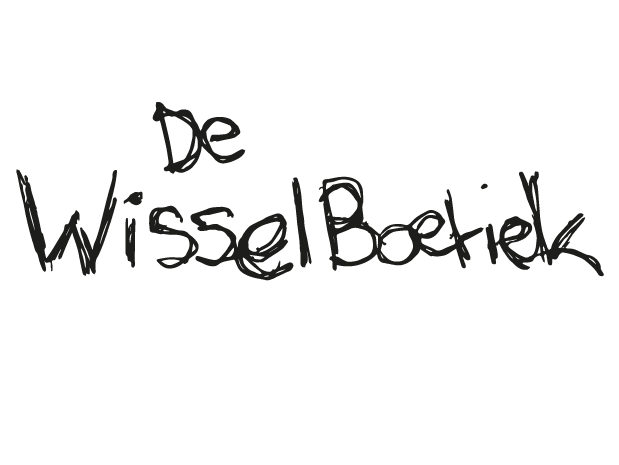 De
WisselBoetiek